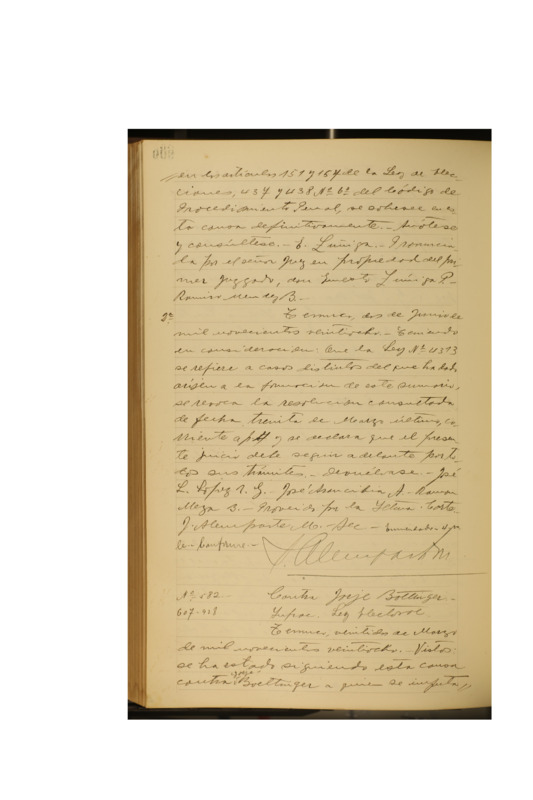 en los artículos 151 y 154 de la Ley de Elec-
ciones, 437 y 438 Nº 6º del Código de
Procedimiento Penal, se sobresee en es-
ta causa definitivamente.- Anótese
y consúltese.- E. Zúñiga.- Pronuncia-
da por el señor Juez en propiedad del pri-
mer Juzgado, don Ernesto Zúñiga P.-
Ramiro Mendez B.-
2ª Temuco, dos de Junio de
mil novecientos veintiocho.- Tomando
en consideración: Que la Ley Nº 4313
se refiere a casos distintos del que ha dado
orijen a la formación de este sumario,
se revoca la resolución consultada
de fecha treinta de Marzo último, co-
rriente a y se declara que el presen-
te juicio debe seguir adelante por to-
dos sus trámites.- Devuélvase.- José
L. López R. G.- José Arancibia A.- Ramon
Meza B.- Proveido por la Iltma. Corte.
J. Alemparte M.- Sec.-
Conforme.-
J. Alemparte M.
Nº 582.- Contra Jorge Boettinger.-
Infrac. Ley Electoral
Temuco, veintidos de Marzo
de mil novecientos veintiocho.- Vistos:
se ha estado siguiendo esta causa
contra Jorge Boettinger a quien se imputa